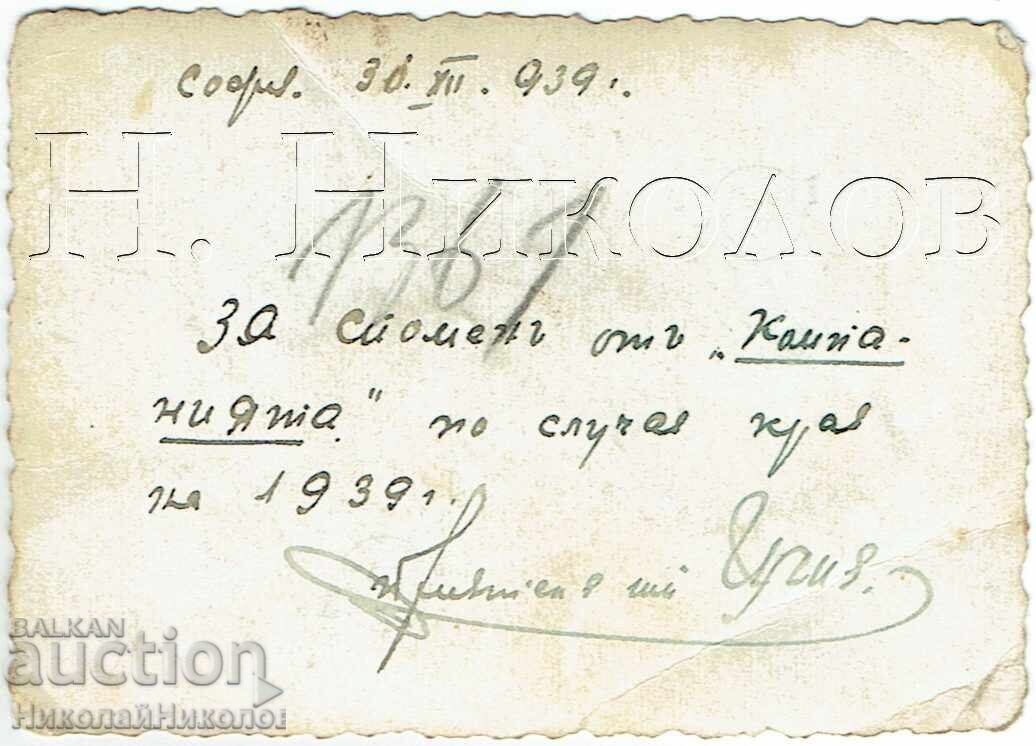 София. 30.XII.939г.
Н. Николов
1367
За споменъ от „Компа-
нията" по случая края
на 1939г.
Приятеля ти
BALKAN
auction
НиколайНиколов